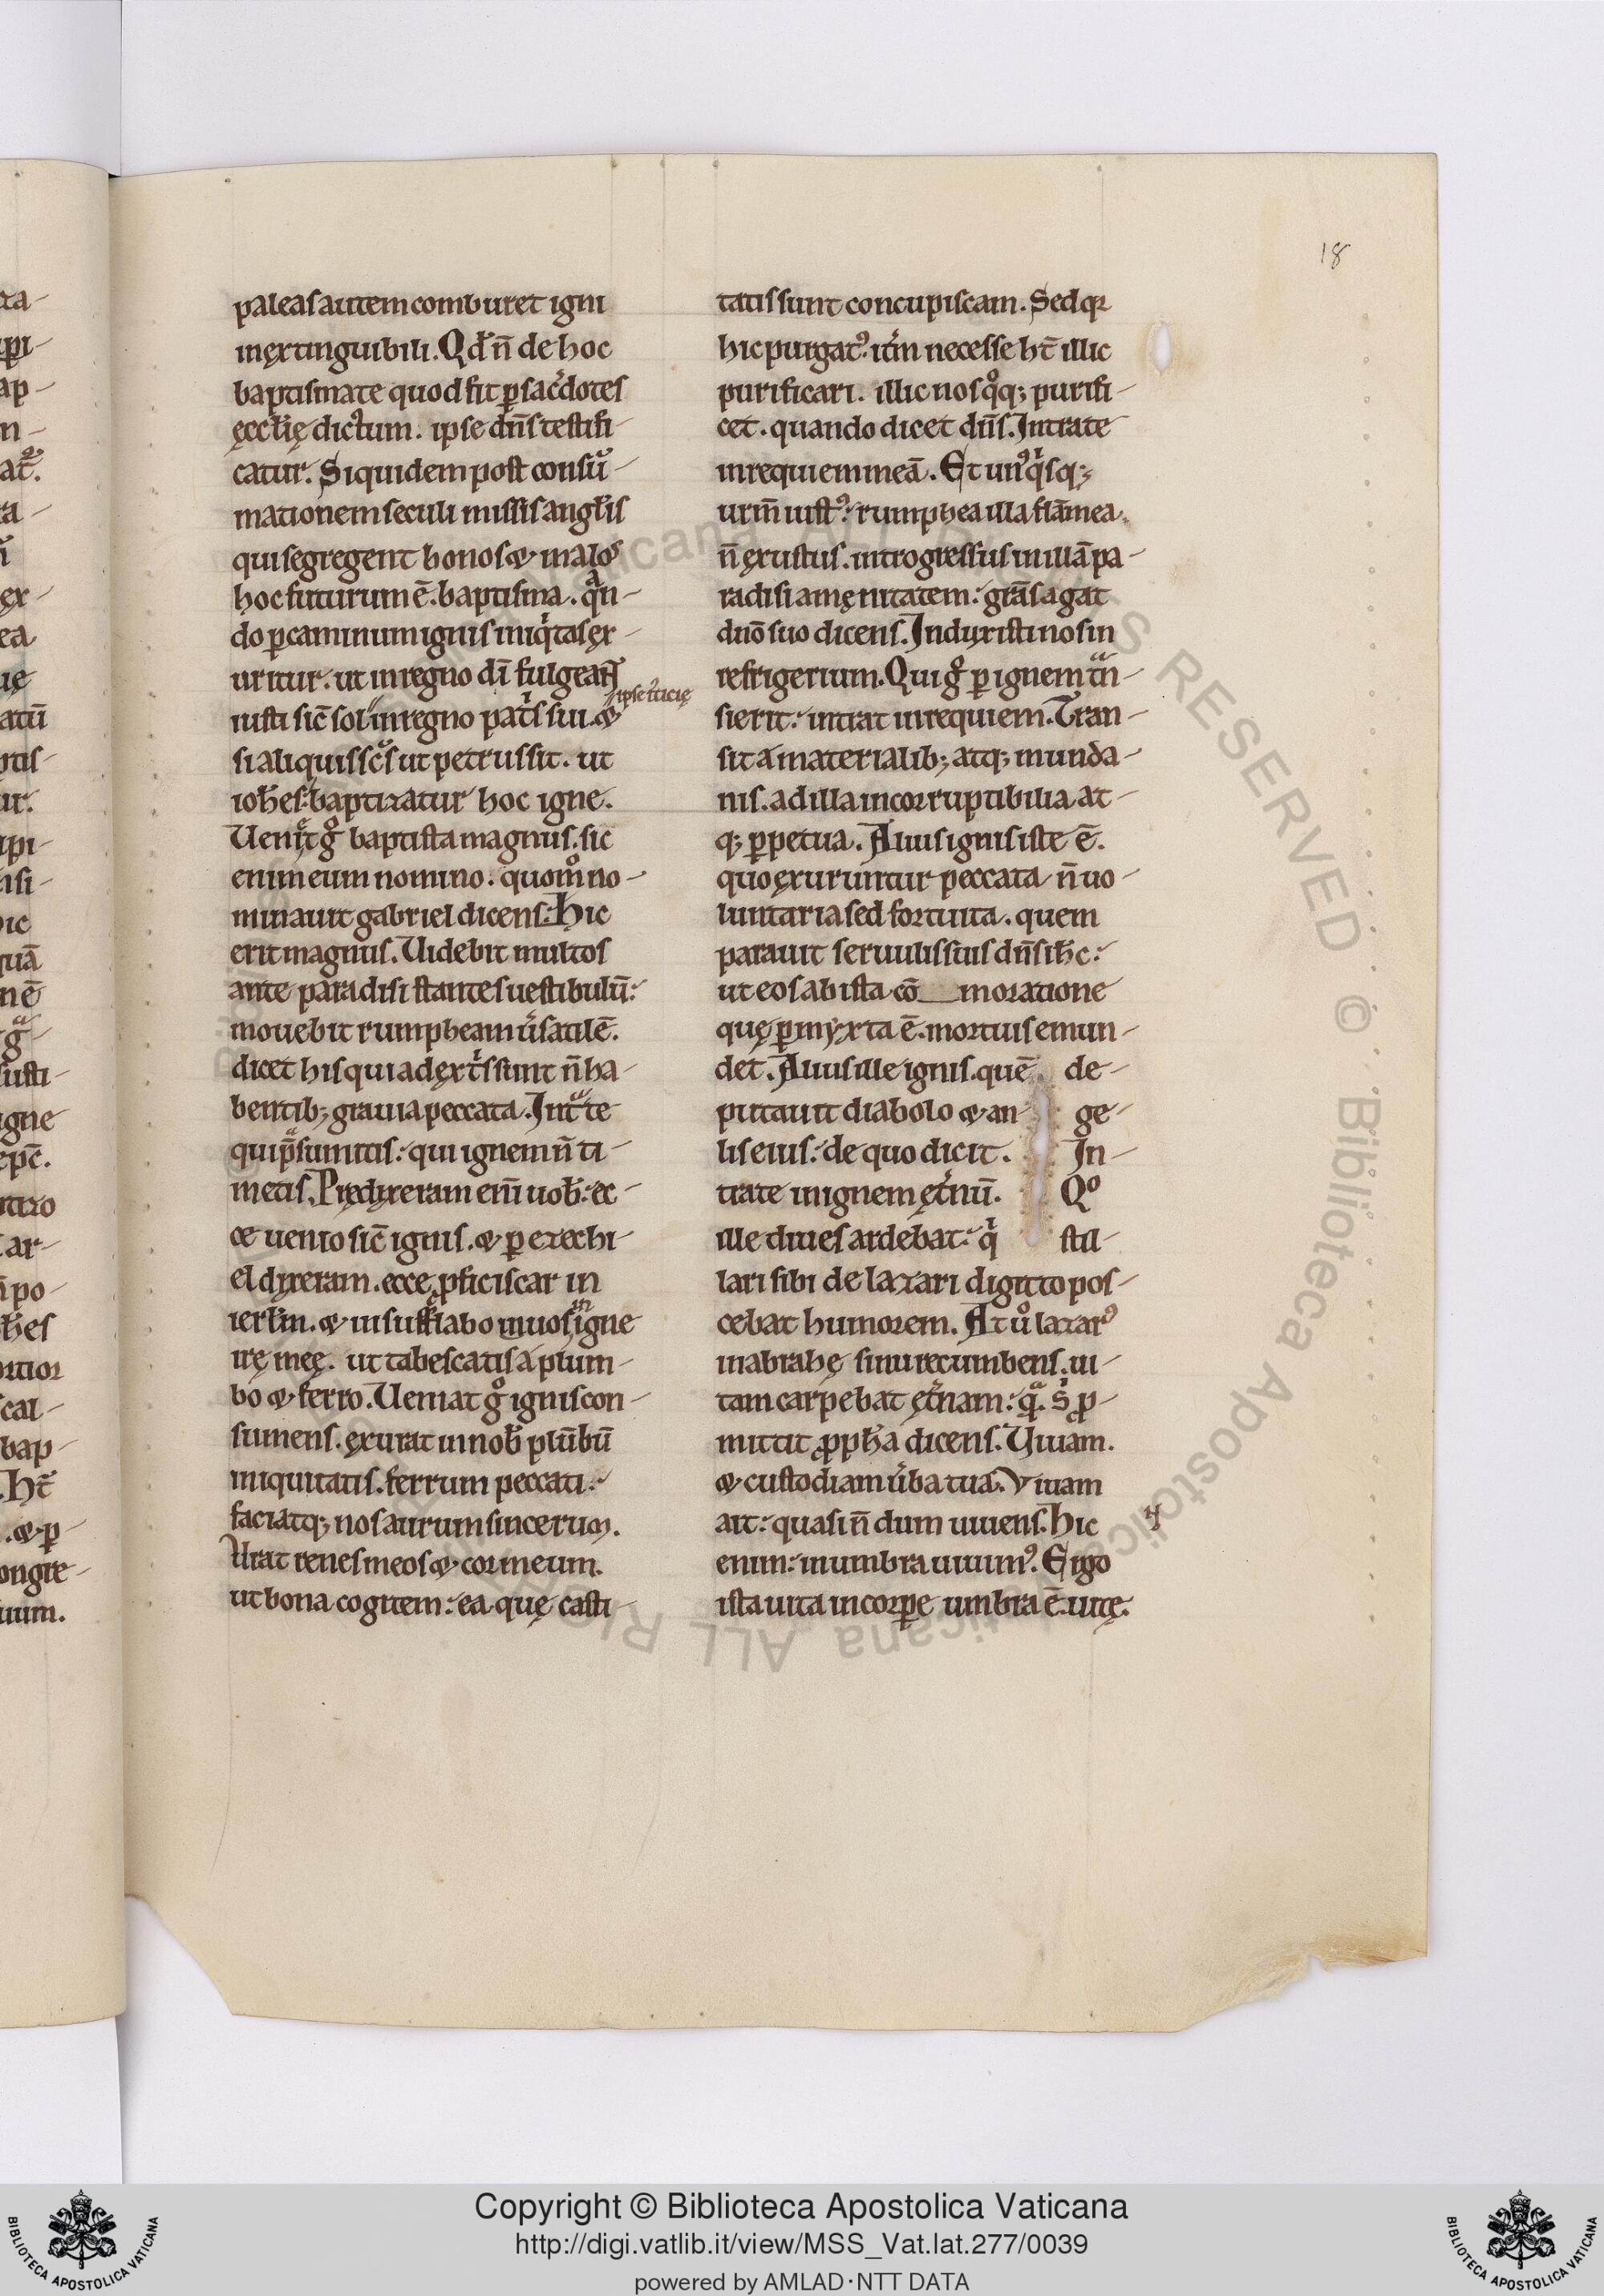 18
paleas autem comburet igni
inęxtinguibili. Qd̄ n̄ de hoc
baptismate quod fit p̱ sac̓dotes
ęccl̄ię dictum. ipse dn̄s testifi-
catur. Siquidem post consū-
mationem seculi missis angl̄is
qui segregent bonos & malos
hoc futurum ē. baptisma. qͣn-
do p̱ caminum ignis iniqͥtas ęx-
uritur. ut in regno dī fulgeant̄
iusti sic̄ sol in regno pat̓s sui. &
ipse iusticię
si aliquis sc̄s ut petrus sit. ut
ioh̄es. baptizatur hoc igne.
Veniet gͦ baptista magnus. sic
enim eum nomino. quom̊ no-
minauit gabriel dicens. Hic
erit magnus. Videbit multos
ante paradisi stantes uestibulū.
mouebit rumpheam ūsatilē.
dicet his qui a dęxt̓s sunt n̄ ha-
bentib; grauia peccata. Intͣte
qui p̄sumitis. qui ignem n̄ ti-
metis. Prędyxeram enī uob̄. ec-
ce uenio sic̄ ignis. & p̱ ezechi-
el dyxeram. ecce ꝓficiscar in
ierl̄m. & insufflabo in uos in igne
irę meę. ut tabescatis a plum-
bo & ferro. Veniat gͦ ignis con-
sumens. ęxurat in nob̄ plūbū
iniquitatis. ferrum peccati.
faciatq; nos aurum sincerum.
Vrat renes meos & cor meum.
ut bona cogitem. ea quę casti-
tatis sunt concupiscam. Sed qꝛ
hic purgat᾿. itm̄ necesse ht̄ illic
purificari. illic nos qͦq; purifi-
cet. quando dicet dn̄s. Intrate
in requiem meā. Et un᾿qͥsq;
urm̄ iust᾿. rumphea illa flāmea.
n̄ ęxustus. introgressus in illā pa-
radisi amęnitatem. grās agat
dn̄o suo dicens. Induxisti nos in
refrigerium. Qui gͦ p̱ ignem tͣn-
sierit. intrat in requiem. Tran-
sit a materialib; atq; munda-
nis. ad illa incorruptibilia at-
q; p̱petua. Alius ignis iste ē.
quo ęxuruntur peccata n̄ uo-
luntaria sed fortuita. quem
parauit seruulis suis dn̄s ih̄c.
ut eos ab ista cō moratione
quę p̱myxta ē. mortuis emun-
det. Alius ille ignis. quē de-
putauit diabolo & an ge-
lis eius. de quo dicit. In-
trate in ignem ęt̓nū. Qͦ
ille diues ardebat. qͥ stil-
lari sibi de lazari digito pos-
cebat humorem. At ůͦ lazar᾿
in abrahę sinu recumbens. ui-
tam carpebat ęt̓nam. qͣ. s̓ p-
mittit ꝓph̄a dicens. Viuam.
& custodiam ūba tua. Viuam
ait. quasi n̄ dum uiuens. Hic
enim. in umbra uiuim᾿. Ergo
ista uita in corp̱e umbra ē. uitę.
Copyright © Biblioteca Apostolica Vaticana
http://digi.vatlib.it/view/MSS_Vat.lat.277/0039
powered by AMLAD·NTT DATA
BIBLIOTECA APOSTOLICA VATICANA
BIBLIOTECA APOSTOLICA VATICANA